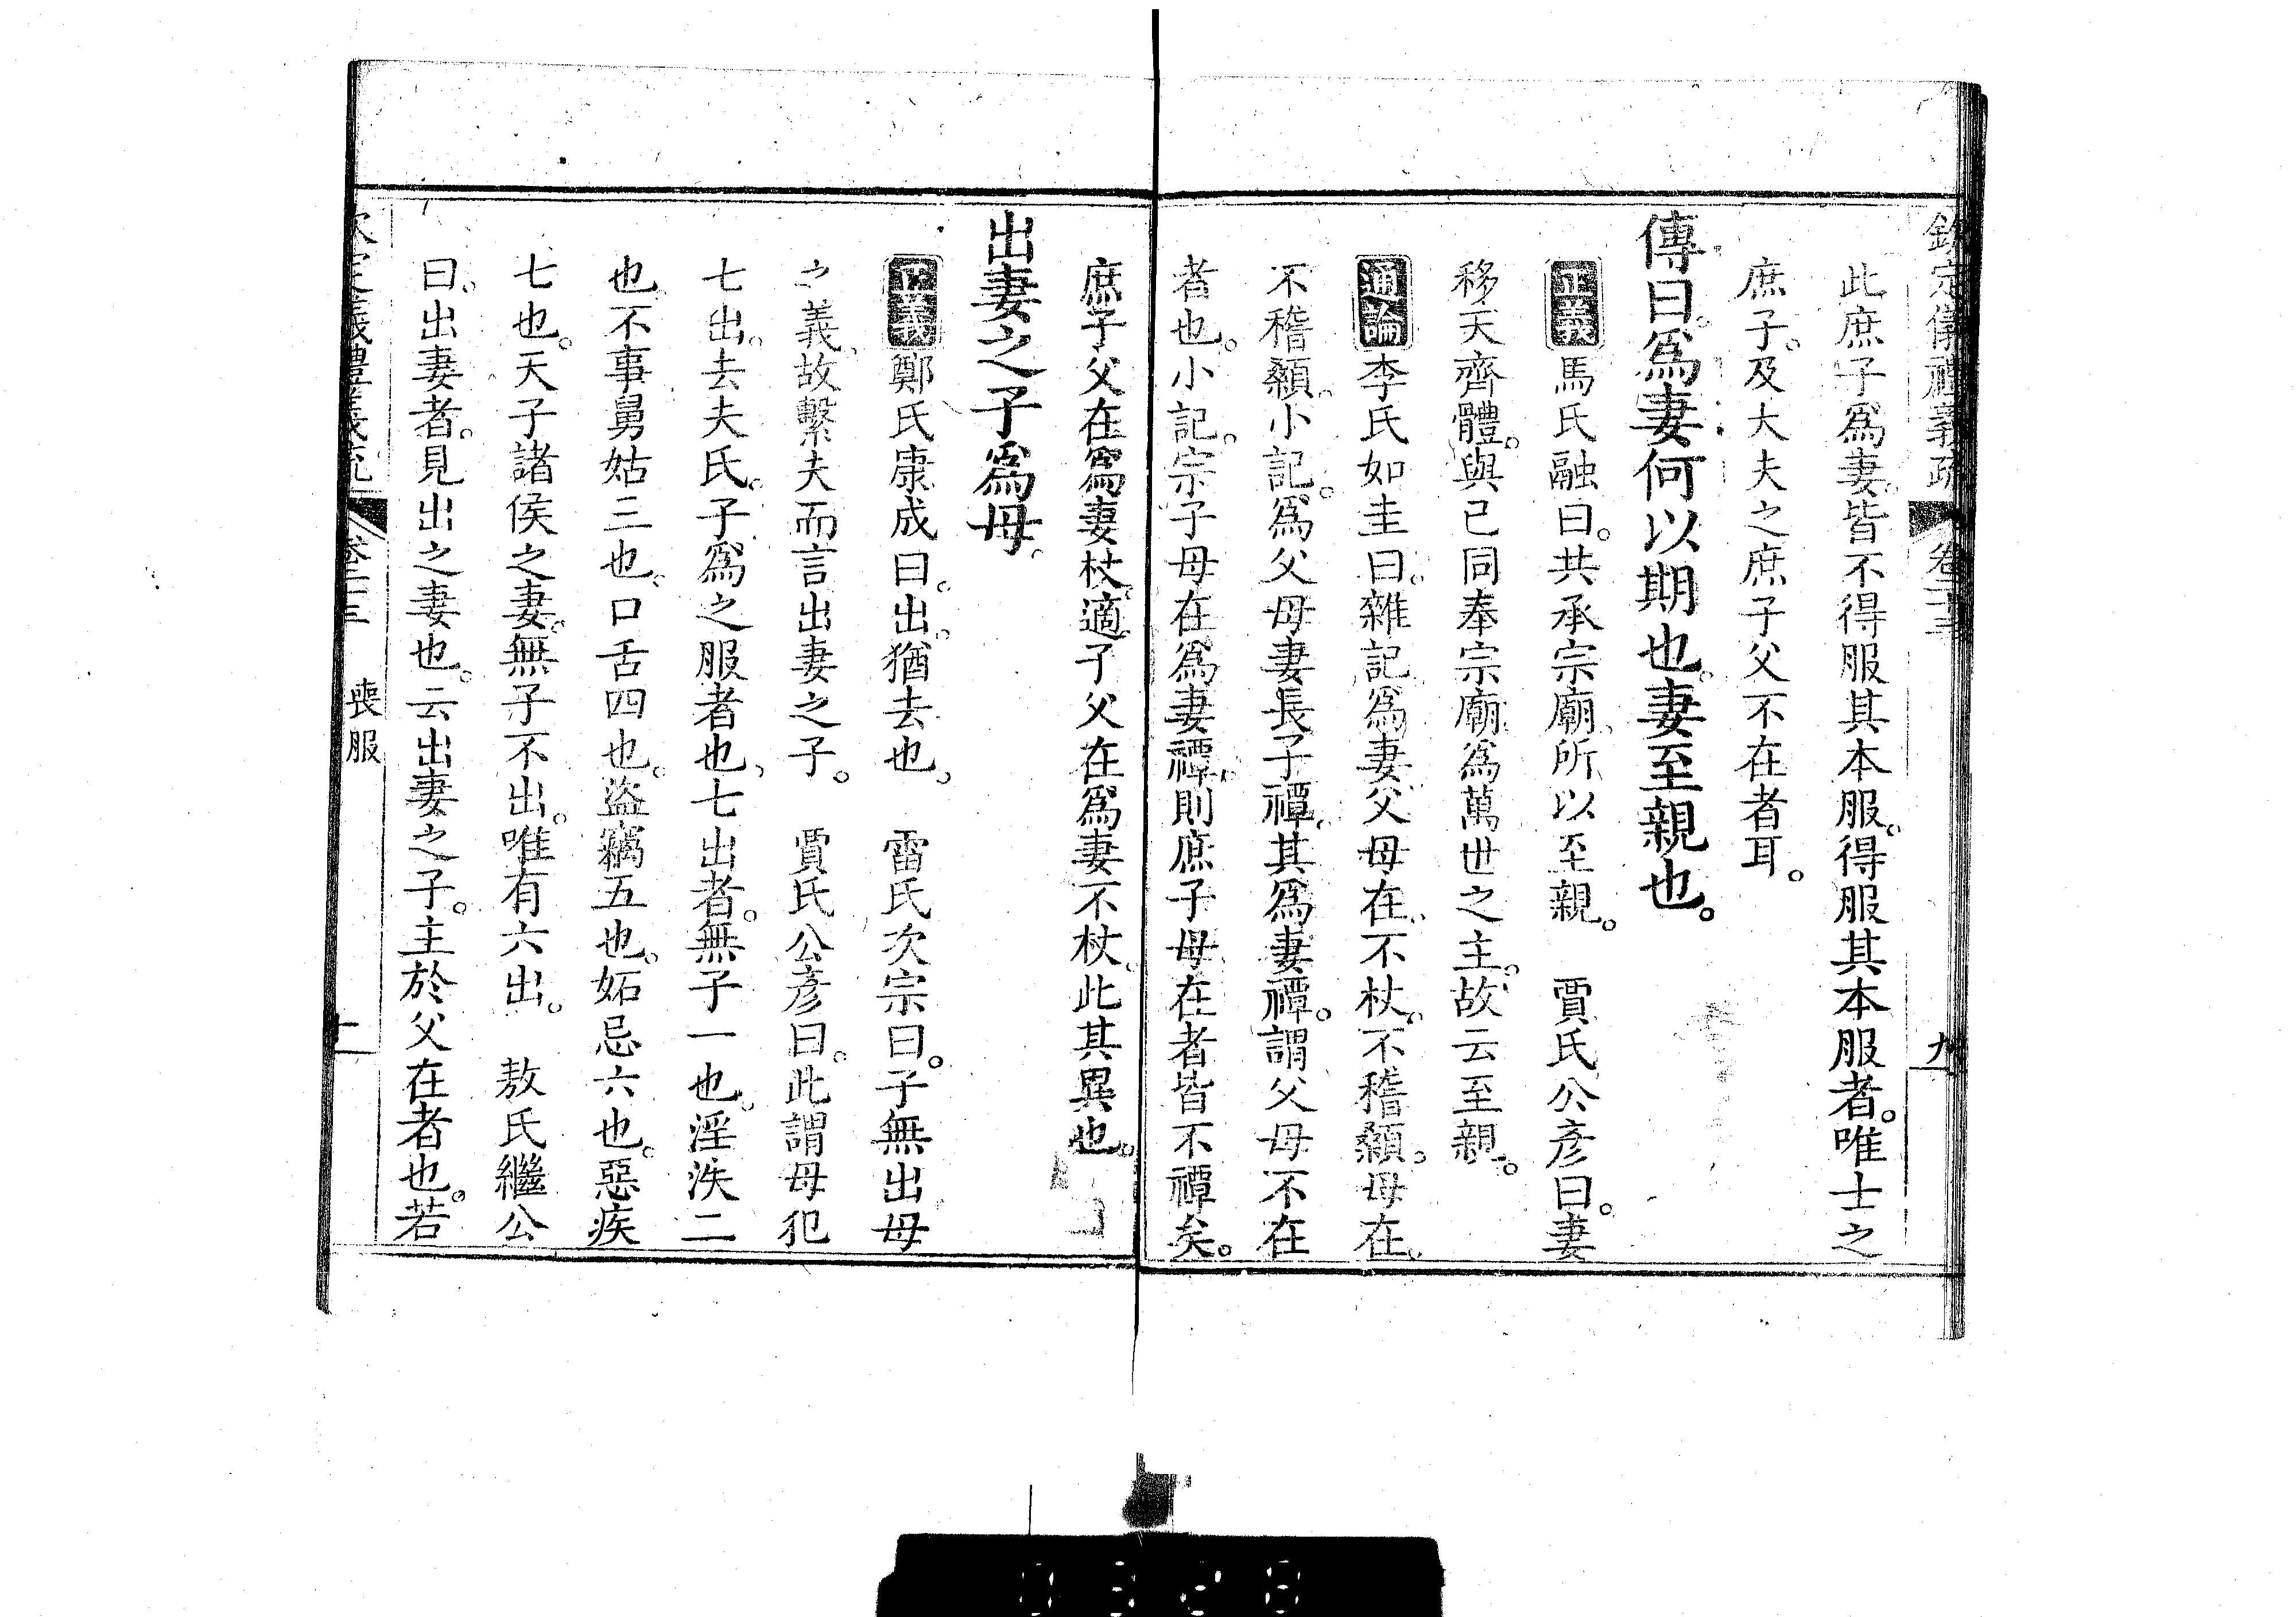 欽定儀禮義疏 卷二十三 九
此庶子爲妻皆不得服其本服。得服其本服者。唯士之
庶子。及大夫之庶子父不在者耳。
傳曰。爲妻何以期也。妻至親也。
正義 馬氏融曰。共承宗廟。所以至親。 賈氏公彥曰。妻
移天齊體。與己同奉宗廟。爲萬世之主。故云至親。
通論 李氏如圭曰。雜記爲妻。父母在。不杖。不稽顙。母在。
不稽顙。小記。爲父母妻長子禫。其爲妻禫。謂父母不在
者也。小記。宗子母在爲妻禫。則庶子母在者皆不禫矣。
庶子父在爲妻杖。適子父在爲妻不杖。此其異也。
出妻之子爲母。
正義 鄭氏康成曰。出。猶去也。 雷氏次宗曰。子無出母
之義。故繫夫而言出妻之子。 賈氏公彥曰。此謂母犯
七出。去夫氏。子爲之服者也。七出者。無子一也。淫泆二
也。不事舅姑三也。口舌四也。盜竊五也。妬忌六也。惡疾
七也。天子諸侯之妻。無子不出。唯有六出。 敖氏繼公
曰。出妻者。見出之妻也。云出妻之子。主於父在者也。若
欽定儀禮義疏 卷二十三 喪服